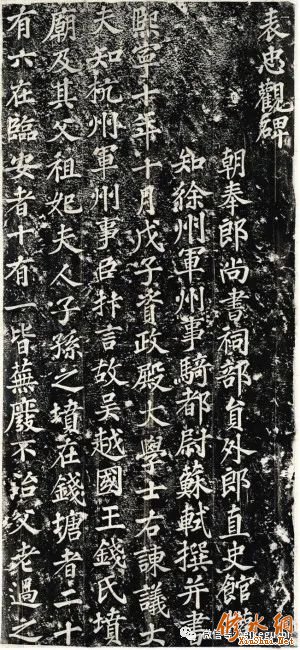 表忠觀碑
朝奉郎尚書祠部員外郎直史館權
知徐州軍州事騎都尉蘇軾撰并書
熙寧十年十月戊子資政殿大學士右諫議大
夫知杭州軍州事臣抃言故吳越國王錢氏墳
廟及其父祖妃夫人子孫之墳在錢塘者二十
有六在臨安者十有一皆蕪廢不治父老過之
修水網